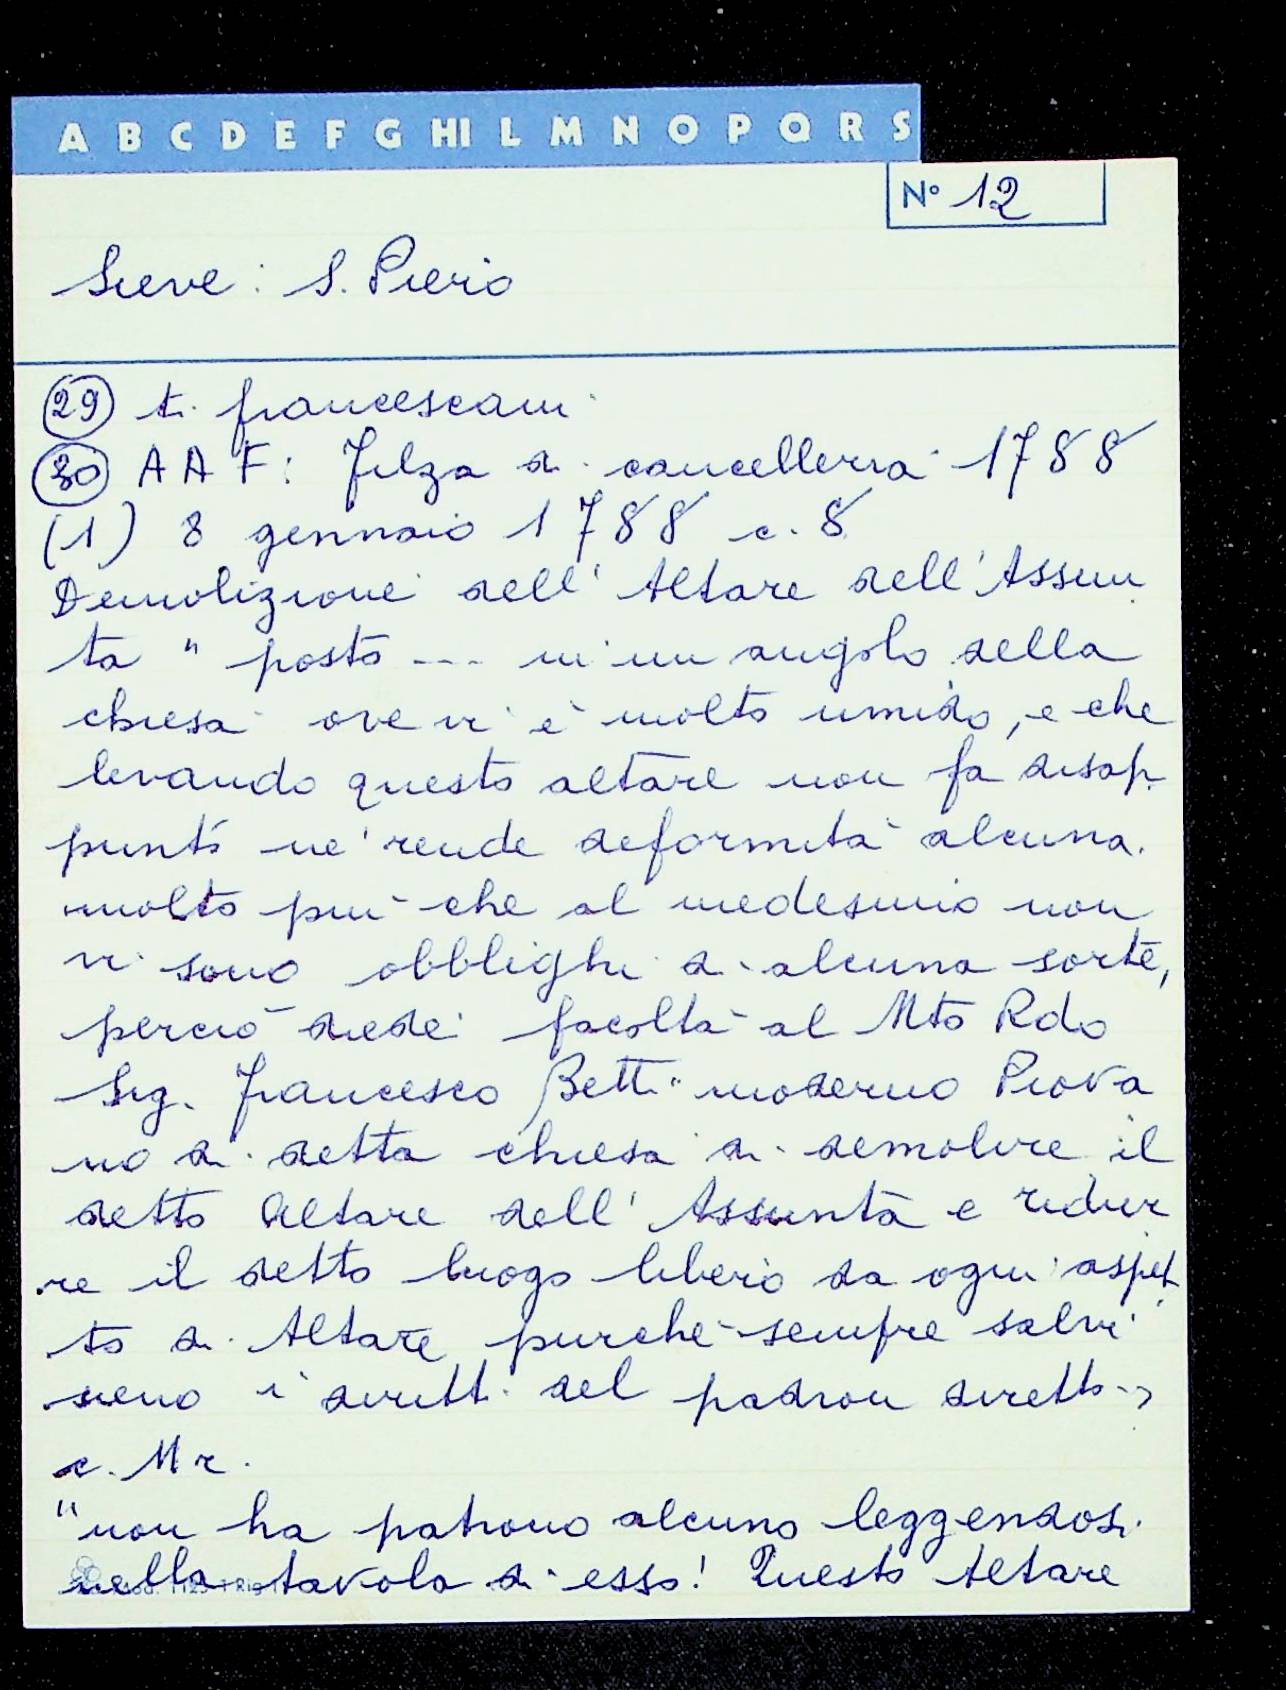 A B C D E F G HI L M N O P Q R S
N° 12
Sieve: S. Piero
29 t. francescani
30 A A F: Filza di cancelleria 1788
(1) 8 gennaio 1788 c. 8
Demolizione dell'Altare dell'Assun
ta " posto --- in un angolo della
chiesa ove vi è molto umido, e che
levando questo altare non fa disap
punto nè rende deformità alcuna.
molto più che al medesimo non
vi sono obblighi di alcuna sorte,
perciò diedi facoltà al Mto Rdo
Sig. Francesco Betti moderno Piova
no di detta chiesa di demolire il
detto Altare dell'Assunta e ridur
re il detto luogo libero da ogni aspet
to di Altare purchè sempre salvi
sieno i diritti del padron diretto.,
c. Mr.
"non ha patrono alcuno leggendosi
nella tavola di esso! Questo Altare